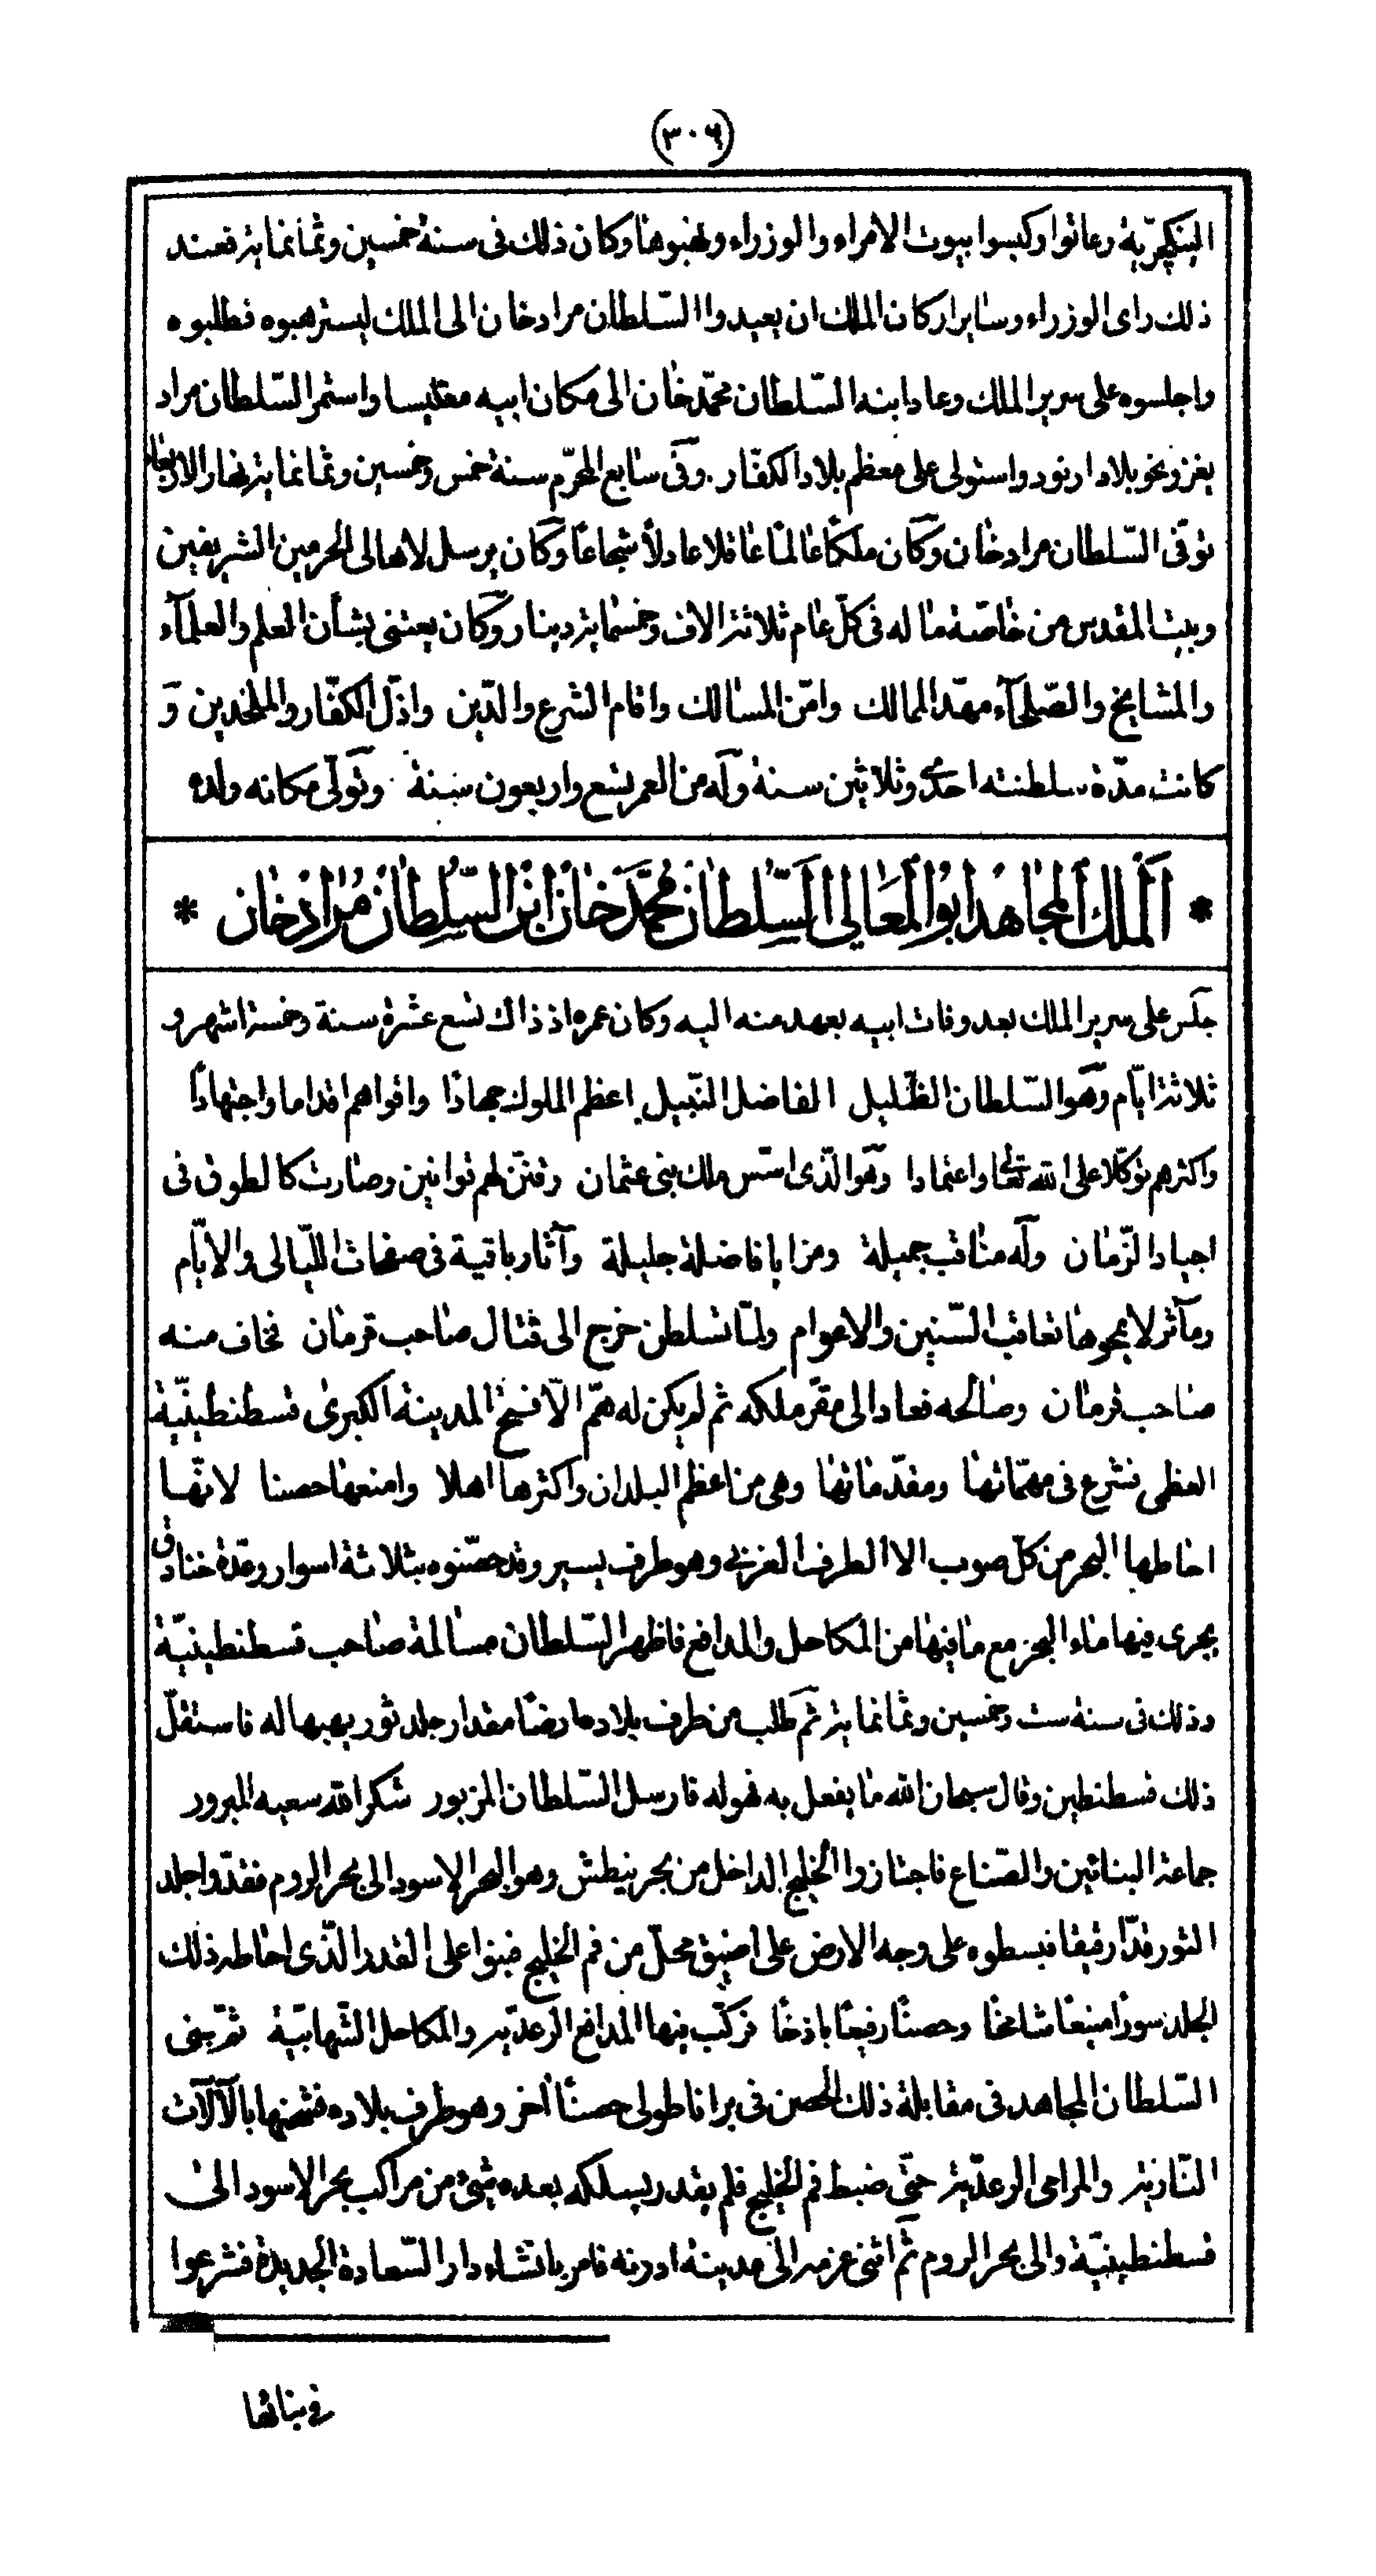 (٣٠٦)
الينكچريّة وعاثوا وكبسوا بيوت الامراء والوزراء ونهبوها وكان ذلك فى سنة خمسين وثمانماية فعند
ذلك راى الوزراء وسايرا ركان الملك ان يعيدوا السّلطان مراد خان الى الملك ليسترهبوه فطلبوه
واجلسوه على سرير الملك وعاد ابنه السّلطان محمّد خان الى مكان ابيه مغنيسا واستمر السّلطان مراد
يغزو نحو بلاد ارنود واستولى على معظم بلاد الكفّار . وفى سابع المحرّم سنة خمس وخمسين وثمانماية نهار الاربعاء
توفى السّلطان مراد خان وكان ملكًا عالمًا عاقلا عادلًا شجاعًا وكان يرسل لاهالى الحرمين الشريفين
وبيت المقدس من خاصّة ماله فى كلّ عام ثلاثة الاف وخمسماية دينار وكان يعتنى بشأن العلم والعلمآء
والمشايخ والصّلحآء مهّد الممالك وامّن المسالك واقام الشرع والدّين واذّل الكفّار والملحدين و
كانت مدّة سلطنته احدى وثلاثين سنة وله من العمر تسع واربعون سنة وتولّى مكانه ولده
* اَلْملك المجاهد ابو المعالى السّلطان محمّد خان ابن السّلطان مراد خان *
جلس على سرير الملك بعد وفات ابيه بعهد منه اليه وكان عمره اذ ذاك تسع عشرة سنة وخمسة اشهر و
ثلاثة ايّام وهو السّلطان الظّليل الفاضل النّبيل اعظم الملوك جهادًا واقواهم اقداما واجتهادًا
واكثرهم توكّلا على الله تعالى واعتمادا وهو الّذى اسّس ملك بنى عثمان وقنّن لهم قوانين وصارت كالطوق فى
اجياد الزّمان وله مناقب جميلة ومزايا فاضلة جليلة وآثار باقية فى صفحات اللّيالى والايّام
ومآثر لا يمحوها تعاقب السّنين والاعوام ولمّا تسلطن خرج الى قتال صاحب قرمان فخاف منه
صاحب قرمان وصالحه فعاد الى مقرّ ملكه ثم لم يكن له همّ الّا فتح المدينة الكبرى قسطنطينيّة
العظمى فشرع فى مهمّاتها ومقدّماتها وهى من اعظم البلدان واكثرها اهلا وامنعها حصنا لانّها
احاطها البحر من كلّ صوب الا الطرف الغربى وهو طرف يسير وقد حصّنوه بثلاثة اسوار وعدة خنادق
يجرى فيها ماء البحر مع ما فيها من المكاحل والمدافع فاظهر السّلطان مسالمة صاحب قسطنطينيّة
وذلك فى سنة ست وخمسين وثمانماية ثم طلب من طرف بلاده ارضًا مقدار جلد ثور يهبها له فاستقلّ
ذلك قسطنطين وقال سبحان الله ما يفعل به فهو له فارسل السّلطان المزبور شكر الله سعيه المبرور
جماعة البنائين والصّناع فاجتازوا الخليج الداخل من بحر بنيطش وهو البحر الاسود الى بحر الروم فقدّوا جلد
الثور قدّا رقيقا فبسطوه على وجه الارض على اضيق محلّ من فم الخليج فبنوا على القدر الّذى احاطه ذلك
الجلد سورًا منيعًا شامخًا وحصنًا رفيعًا باذخًا فركّب فيها المدافع الرعديّة والمكاحل الشّهابيّة ثمّ بنى
السّلطان المجاهد فى مقابلة ذلك الحصن فى برّ اناطولى حصنًا آخر وهو طرف بلاده فشحنها بالآلات
النّارية والمرامى الرعدّية حتّى ضبط فم الخليج فلم يقدر يسلكه بعده شئ من مراكب بحر الاسود الى
قسطنطينيّة والى بحر الروم ثم اثنى عزمه الى مدينة ادرنه فامر بانشاء دار السّعادة الجديدة فشرعوا
فى بنائها